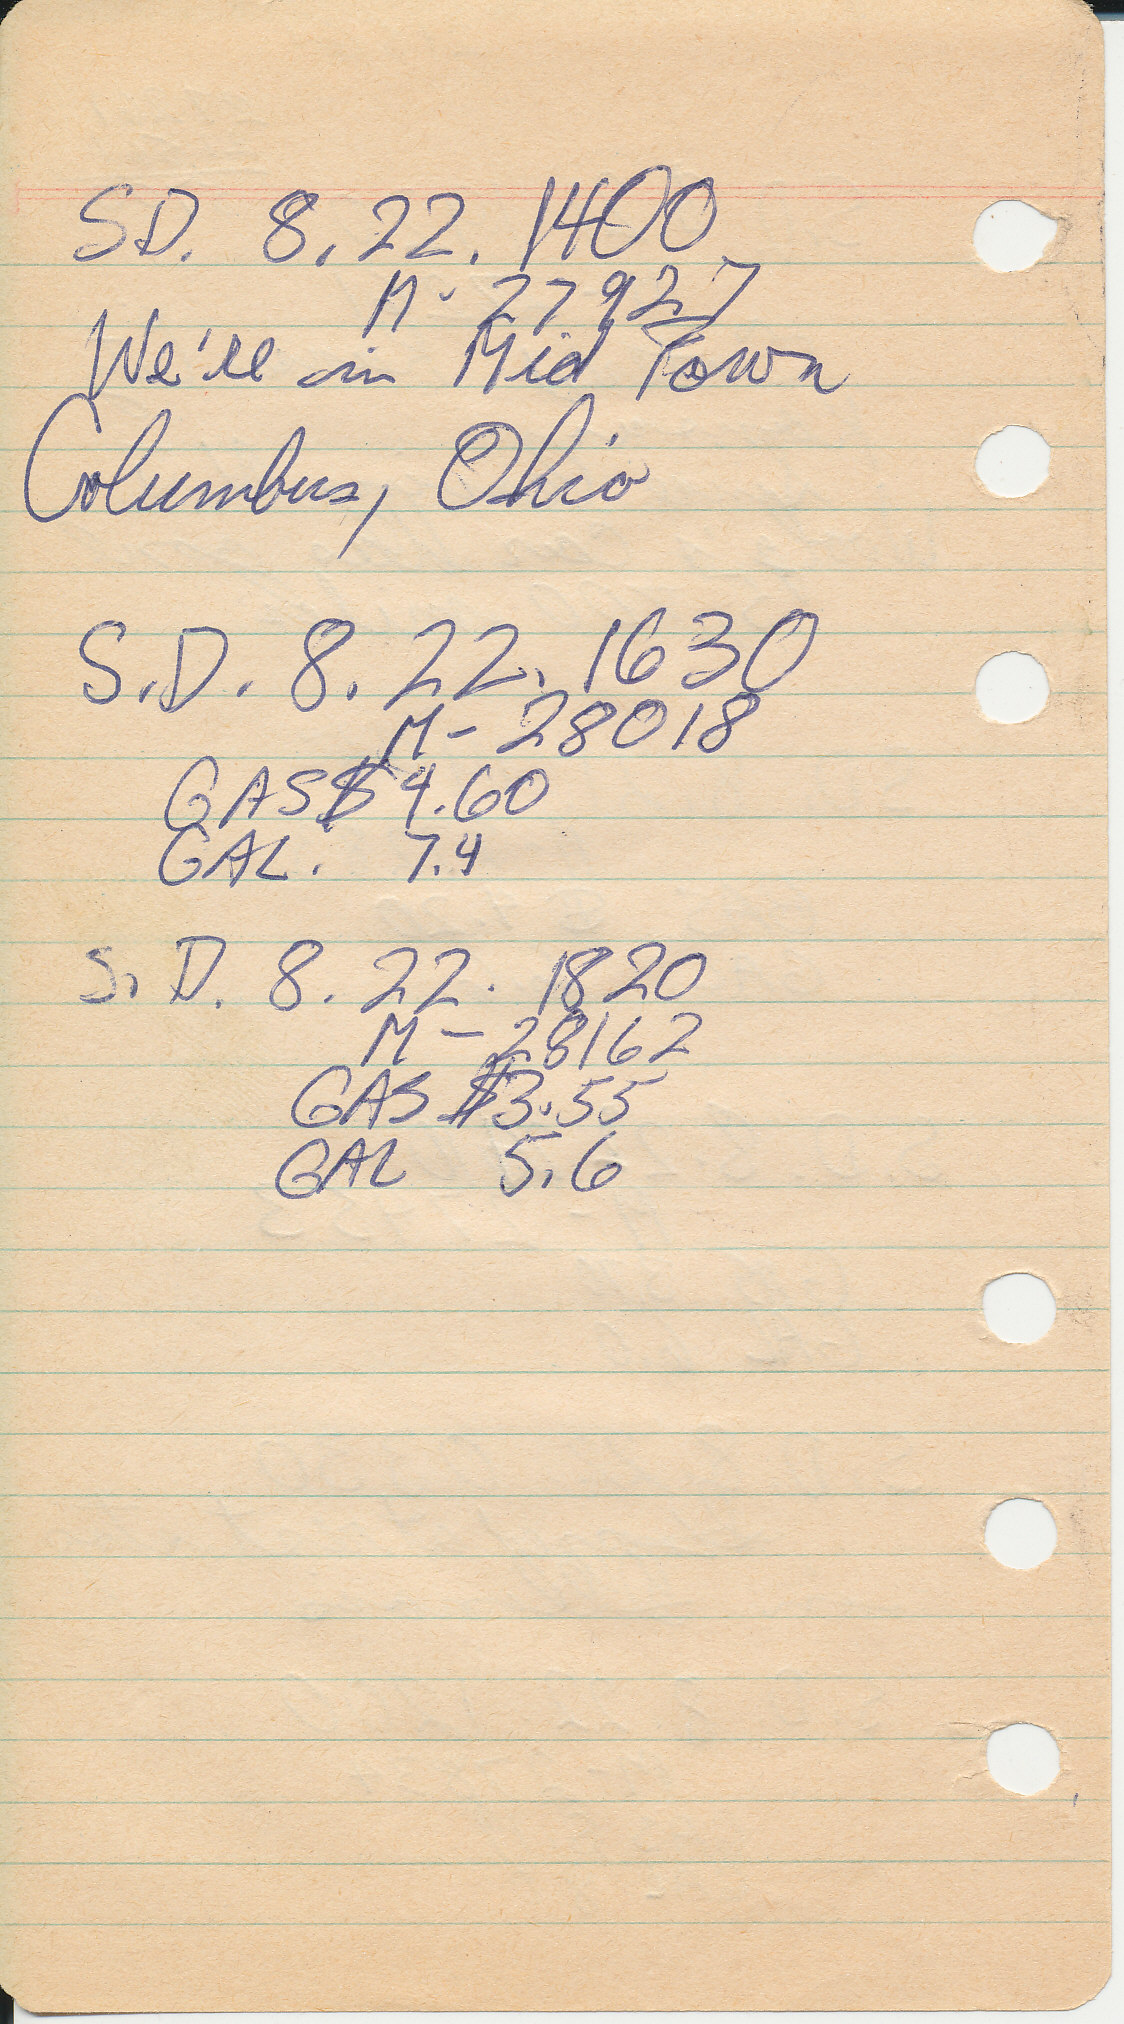 SD. 8.22.1400
M- 27927
We'll in Mid Town
Columbus, Ohio
S.D. 8.22.1630
M- 28018
GAS $4.60
GAL. 7.4
S.D. 8.22.1820
M- 28162
GAS $3.55
GAL 5.6